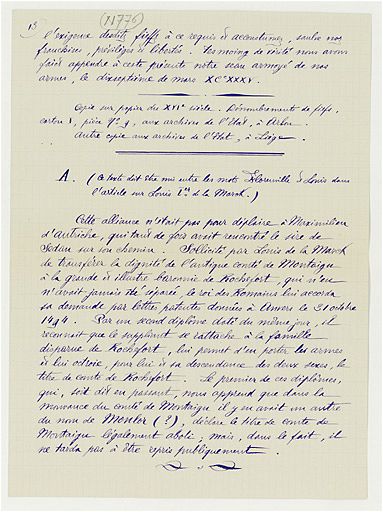 13 (N776)
l'exigence desdits fieffz à ce requis & accoustumez, saulve nos
franchises, privilèges & libertés. Tesmoing de vérité nous avons
faict appendre à ceste présente notre scau armoyé de nos
armes, le dixseptième de mars XVCXXXV.
Copie sur papier du XVIe siècle. Dénombrements de fiefs,
carton 1, pièce 9, aux archives de l'Etat, à Arlon.
Autre copie aux archives de l'Etat, à Liège.
A. (Ce texte doit être mis entre les mots Florenville & Louis dans
l'article sur Louis Ier de la Marck.)
Cette alliance n'était pas pour déplaire à Maximilien
d'Autriche, qui tant de fois avait rencontré le sire de
Sedan sur son chemin. Sollicité par Louis de la Marck
de transférer la dignité de l'antique comté de Montaigu
à la grande & illustre baronnie de Rochefort, qui n'en
n'avait jamais été séparée, le roi des Romains lui accorda
sa demande par lettres patentes données à Anvers le 31 octobre
1494. Par un second diplôme daté du même jour, il
reconnait que le suppliant se rattache à la famille
disparue de Rochefort, lui permet d'en porter les armes
& lui octroie, pour lui & sa descendance des deux sexes, le
titre de comte de Rochefort. Le premier de ces diplômes,
qui, soit dit en passant, nous apprend que dans la
mouvance du comté de Montaigu il y en avait un autre
du nom de (?), déclare le titre de comte de
Montaigu légalement aboli; mais, dans le fait, il
ne tarda pas à être repris publiquement.